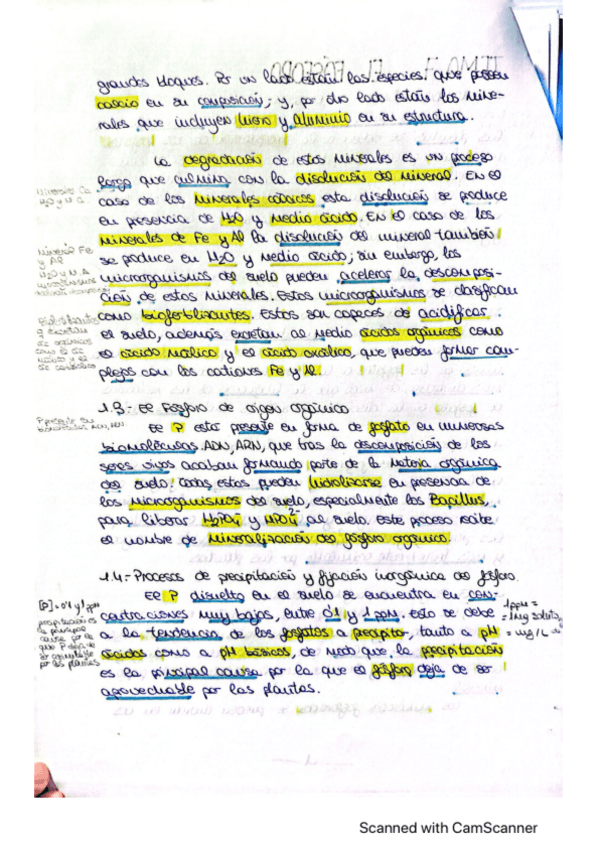 grandes bloques. Por un lado están las especies que poseen
calcio en su composición; y, por otro lado están los mine-
rales que incluyen hierro y aluminio en su estructura.
La degradación de estos minerales es un proceso
largo que culmina con la disolución del mineral. En el
caso de los minerales cálcicos esta disolución se produce
en presencia de H2O y medio ácido. En el caso de los
minerales de Fe y Al la disolución del mineral también
se produce en H2O y medio ácido; sin embargo, los
microorganismos del suelo pueden acelerar la descomposi-
ción de estos minerales. Estos microorganismos se clasifican
como biofertilizantes. Estos son capaces de acidificar
el suelo, además excretan al medio ácidos orgánicos como
el ácido málico y el ácido oxálico, que pueden formar com-
plejos con los cationes Fe y Al.
1.3.- El Fósforo de origen orgánico
El P está presente en forma de fosfato en numerosas
biomoléculas ADN, ARN, que tras la descomposición de los
seres vivos acaban formando parte de la materia orgánica
del suelo. Todas estas pueden hidrolizarse en presencia de
los microorganismos del suelo, especialmente los Bacillus,
para liberar H2PO4- y HPO4 2- al suelo. Este proceso recibe
el nombre de mineralización del fósforo orgánico.
1.4.- Procesos de precipitación y fijación inorgánica del fósforo.
El P disuelto en el suelo se encuentra en con-
centraciones muy bajas, entre 0'1 y 1 ppm. Esto se debe
a la tendencia de los fosfatos a precipitar, tanto a pH
ácidos como a pH básicos, de modo que, la precipitación
es la principal causa por la que el fósforo deja de ser
aprovechable por las plantas.
Minerales Ca
H2O y M.A.
Mineral Fe
y Al
H2O y M.A
[P] = 0'1 y 1 ppm
precipitación es
la principal
causa por la
que P deja de
ser aprovechable
por las plantas
1 ppm =
= 1 mg soluto
= mg/L
Scanned with CamScanner